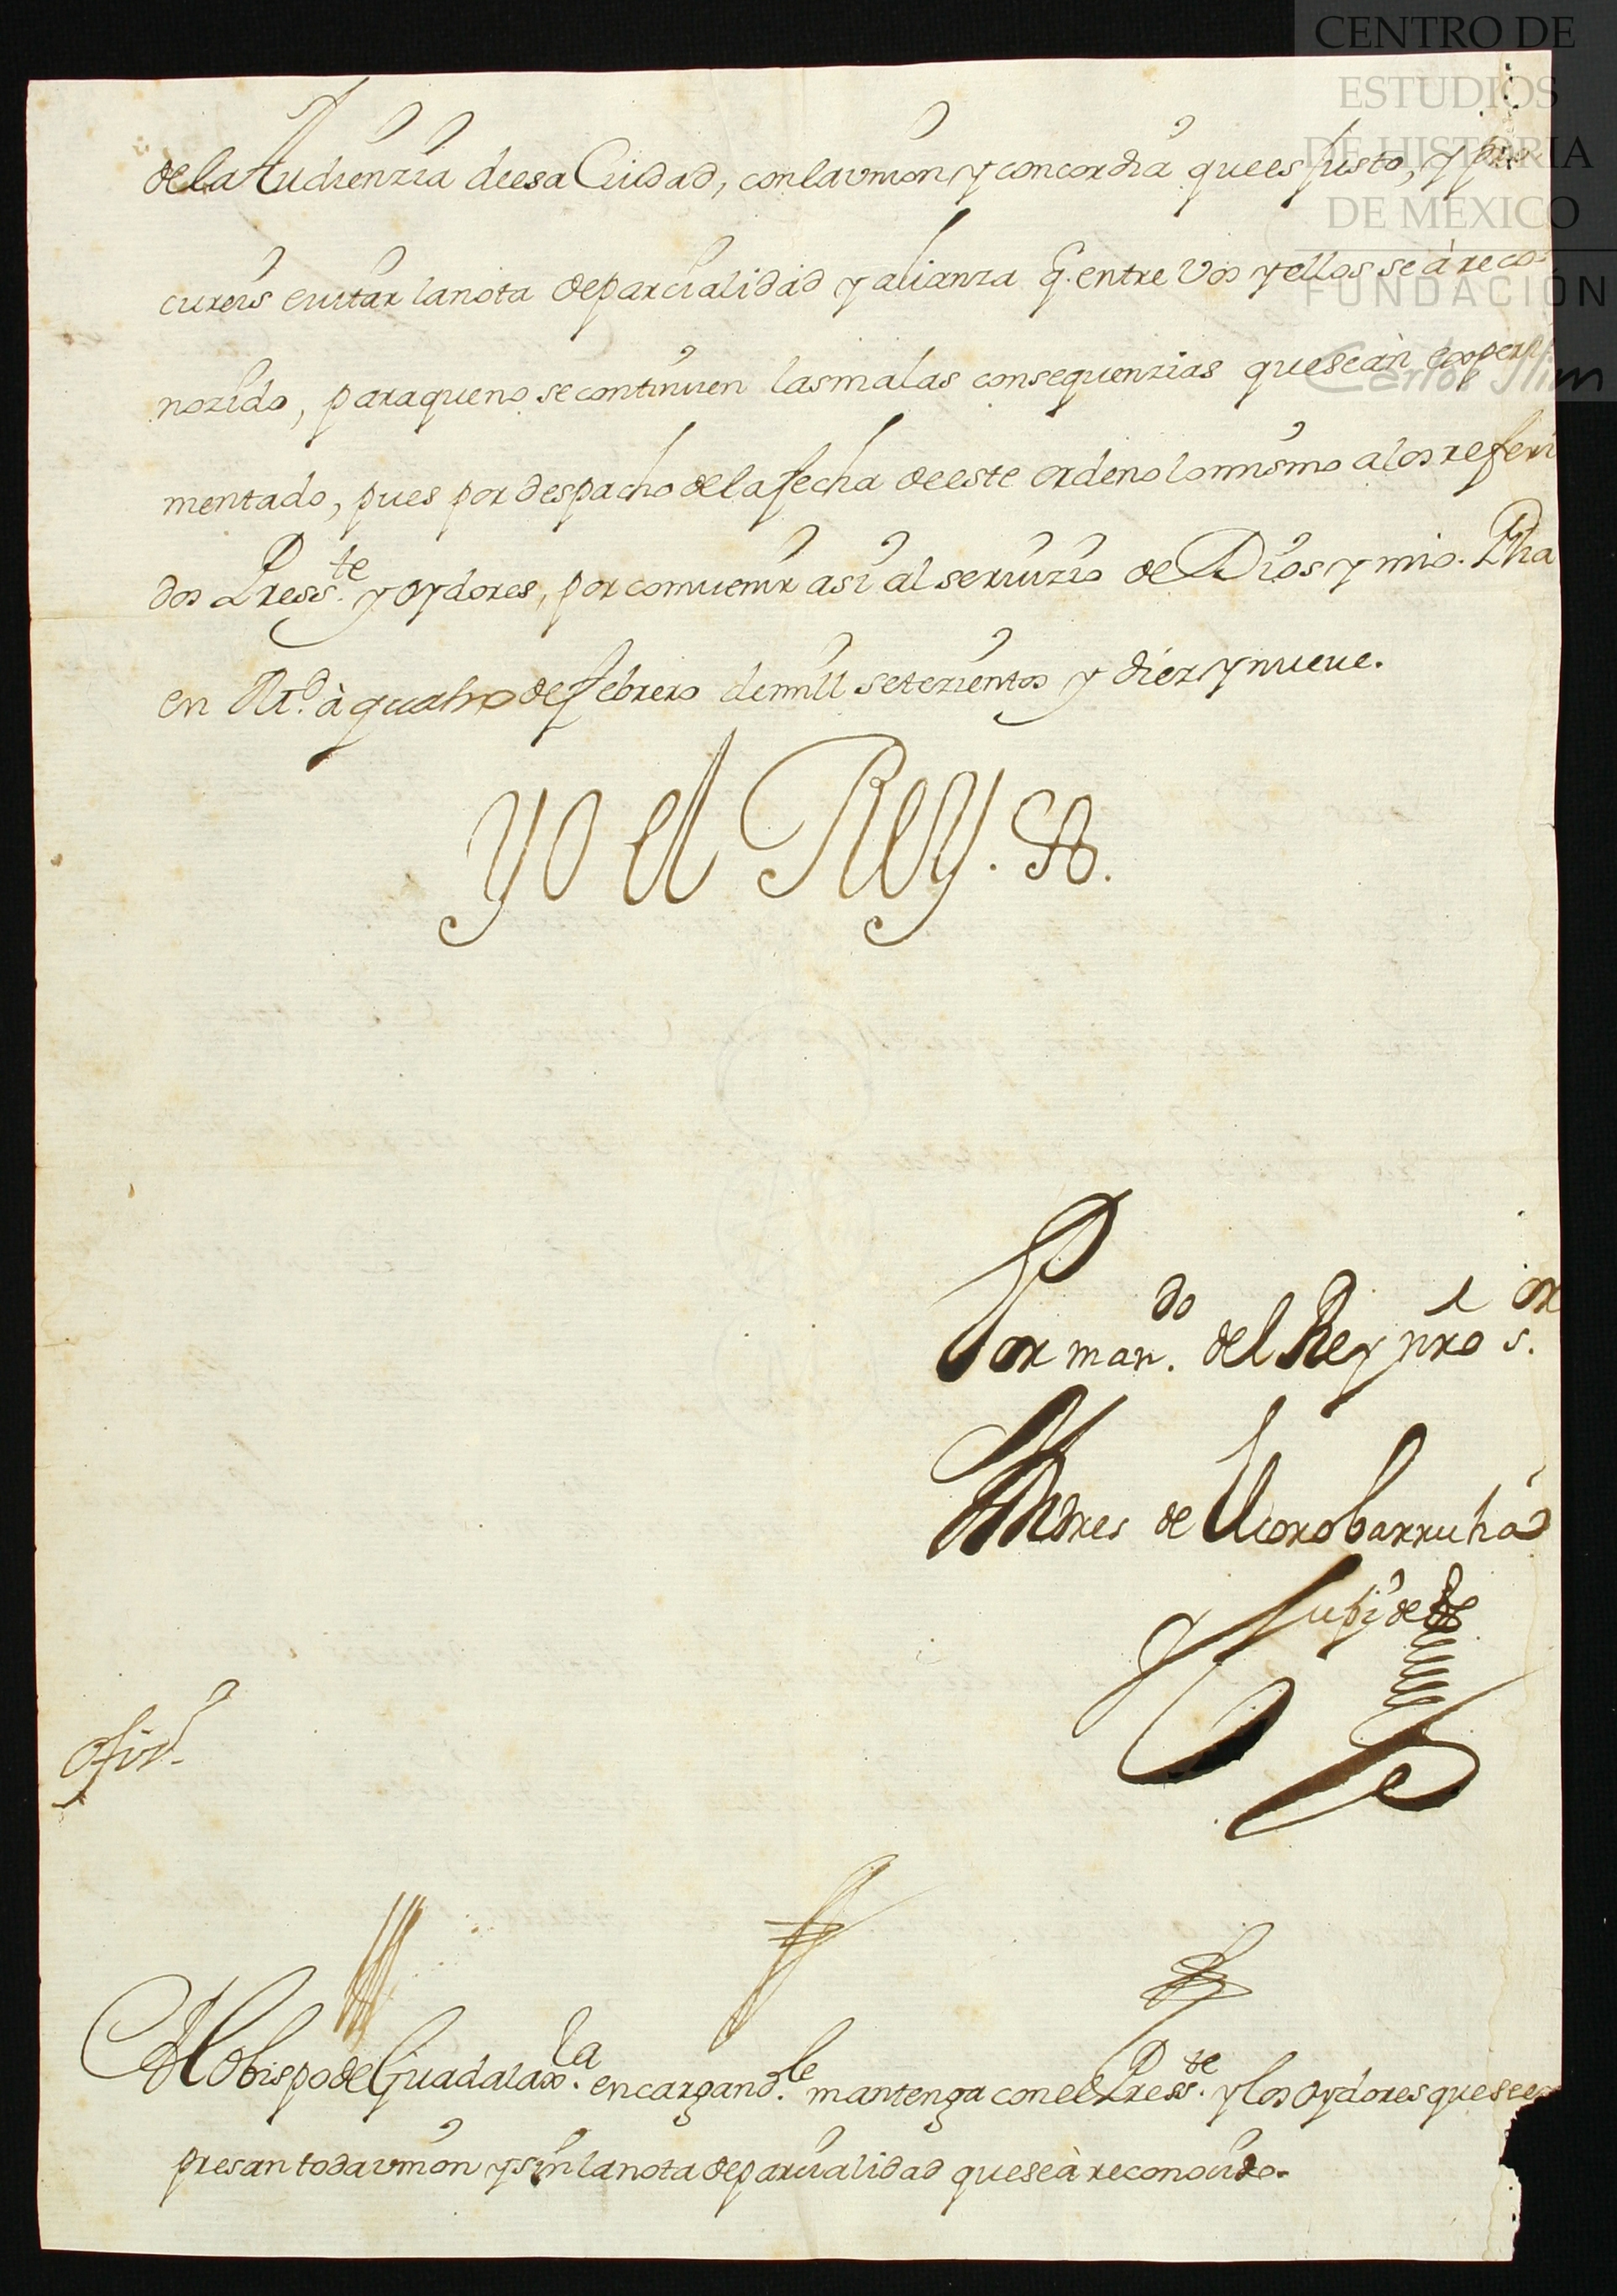 CENTRO DE
ESTUDIOS
DE HISTORIA
DE MÉXICO
FUNDACIÓN
Carlos Slim
de la Audienzia de esa Ciudad, con la vnion y concordia que es justo, y pro
cureis euitar la nota de parcialidad y alianza q. entre Vos y ellos se à reco-
nozido, para que no se continuen las malas consequenzias que se àn experi
mentado, pues por despacho de la fecha de este ordeno lo mismo a los referi
dos Press.te y oydores, por comuenir asi al seruizio de Dios y mio. Fha
en M.d à quatro de febrero de mill setezientos y diez y nueue.
Yo el Rey.
Por man.do del Rey nro s.or
Andres de
Al obispo de Guadalax.la encargand.le mantenga con el Press.te y los oydores que se ex
presan toda vnion y sin la nota de parcialidad que se à reconocido.